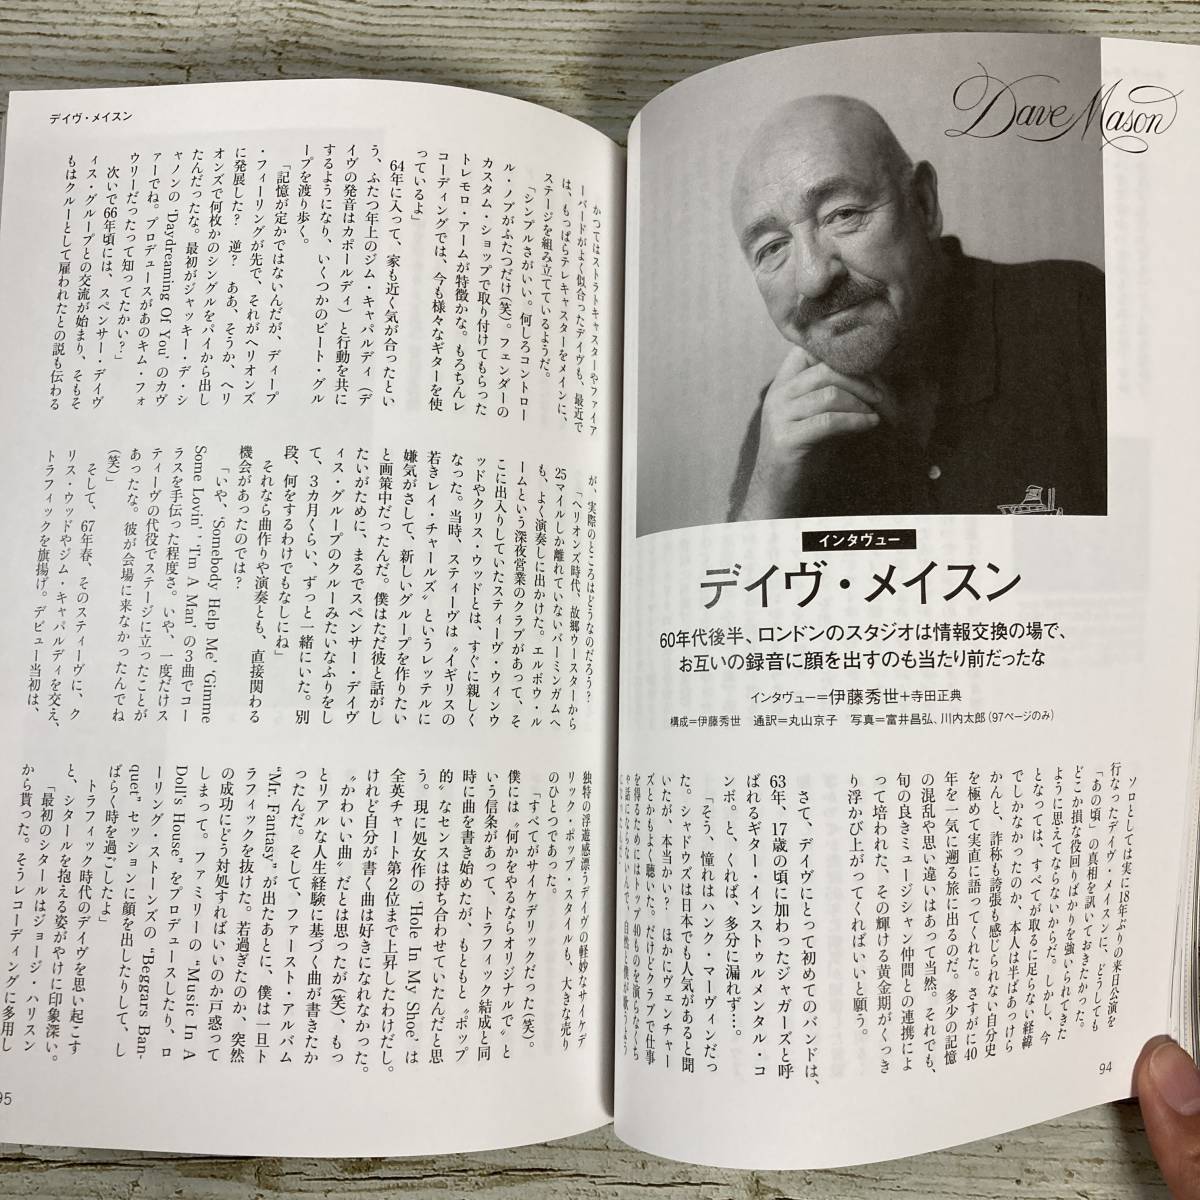 Dave Mason
インタヴュー
デイヴ・メイスン
60年代後半、ロンドンのスタジオは情報交換の場で、
お互いの録音に顔を出すのも当たり前だったな
インタヴュー=伊藤秀世+寺田正典
構成=伊藤秀世 通訳=丸山京子 写真=富井昌弘、川内太郎(97ページのみ)
ソロとしては実に18年ぶりの来日公演を
行なったデイヴ・メイスンに、どうしても
「あの頃」の真相を訊いておきたかった。
どこか損な役回りばかりを強いられてきた
ように思えてならないからだ。しかし、今
となっては、すべてが取るに足らない経緯
でしかなかったのか、本人は半ばあっけら
かんと、詐称も誇張も感じられない自分史
を極めて実直に語ってくれた。さすがに40
年を一気に遡る旅に出るのだ。多少の記憶
の混乱や思い違いはあって当然。それでも、
旬の良きミュージシャン仲間との連携によ
って培われた、その輝ける黄金期がくっき
り浮かび上がってくればいいと願う。
さて、デイヴにとって初めてのバンドは、
63年、17歳の頃に加わったジャガーズと呼
ばれるギター・インストゥルメンタル・コ
ンボ。と、くれば、多分に漏れず…。
「そう、憧れはハンク・マーヴィンだっ
た。シャドウズは日本でも人気があると聞
いたが、本当かい? ほかにヴェンチャー
ズとかもよく聴いた。だけどクラブで仕事
を得るためにはトップ40ものを演らなくち
94
デイヴ・メイスン
かつてはストラトキャスターやファイア
ーバードがよく似合ったデイヴも、最近で
は、もっぱらテレキャスターをメインに、
ステージを組み立てているようだ。
「シンプルさがいい。何しろコントロー
ル・ノブがふたつだけ(笑)。フェンダーの
カスタム・ショップで取り付けてもらった
トレモロ・アームが特徴かな。もちろんレ
コーディングでは、今も様々なギターを使
っているよ」
64年に入って、家も近く気が合ったとい
う、ふたつ年上のジム・キャパルディ(デ
イヴの発音はカポールディ)と行動を共に
するようになり、いくつかのビート・グル
ープを渡り歩く。
「記憶が定かではないんだが、ディープ
・フィーリングが先で、それがヘリオンズ
に発展した? 逆? ああ、そうか、ヘリ
オンズで何枚かのシングルをパイから出し
たんだったな。最初がジャッキー・デ・シ
ャノンの‘Daydreaming Of You’のカヴ
ァーでね。プロデュースがあのキム・フォ
ウリーだったって知ってたかい?」
次いで66年頃には、スペンサー・デイヴ
ィス・グループとの交流が始まり、そもそ
もはクルーとして雇われたとの説も伝わる
が、実際のところはどうなのだろう?
「ヘリオンズ時代、故郷ウースターから
25マイルしか離れていないバーミンガムへ
も、よく演奏しに出かけた。エルボウ・ル
ームという深夜営業のクラブがあって、そ
こに出入りしていたスティーヴ・ウィンウ
ッドやクリス・ウッドとは、すぐに親しく
なった。当時、スティーヴは〝イギリスの
若きレイ・チャールズ〟というレッテルに
嫌気がさして、新しいグループを作りたい
と画策中だったんだ。僕はただ彼と話がし
たいがために、まるでスペンサー・デイヴ
ィス・グループのクルーみたいなふりをし
て、3カ月くらい、ずっと一緒にいた。別
段、何をするわけでもなしにね」
それなら曲作りや演奏とも、直接関わる
機会があったのでは?
「いや、‘Somebody Help Me’‘Gimme
Some Lovin’’‘I'm A Man’の3曲でコー
ラスを手伝った程度さ。いや、一度だけス
ティーヴの代役でステージに立ったことが
あったな。彼が会場に来なかったんでね
(笑)」
そして、67年春、そのスティーヴに、ク
リス・ウッドやジム・キャパルディを交え、
トラフィックを旗揚げ。デビュー当初は、
独特の浮遊感漂うデイヴの軽妙なサイケデ
リック・ポップ・スタイルも、大きな売り
のひとつであった。
「すべてがサイケデリックだった(笑)。
僕には〝何かをやるならオリジナルで〟と
いう信条があって、トラフィック結成と同
時に曲を書き始めたが、もともと〝ポップ
的〟なセンスは持ち合わせていたんだと思
う。現に処女作の‘Hole In My Shoe’は
全英チャート第2位まで上昇したわけだし。
けれど自分が書く曲は好きになれなかった。
〝かわいい曲〟だとは思ったが(笑)、もっ
とリアルな人生経験に基づく曲が書きたか
ったんだ。そして、ファースト・アルバム
“Mr. Fantasy”が出たあとに、僕は一旦ト
ラフィックを抜けた。若過ぎたのか、突然
の成功にどう対処すればいいのか戸惑って
しまって。ファミリーの“Music In A
Doll's House”をプロデュースしたり、ロ
ーリング・ストーンズの“Beggars Ban-
quet”セッションに顔を出したりして、し
ばらく時を過ごしたよ」
トラフィック時代のデイヴを思い起こす
と、シタールを抱える姿がやけに印象深い。
「最初のシタールはジョージ・ハリスン
から貰った。そうレコーディングに多用し
95